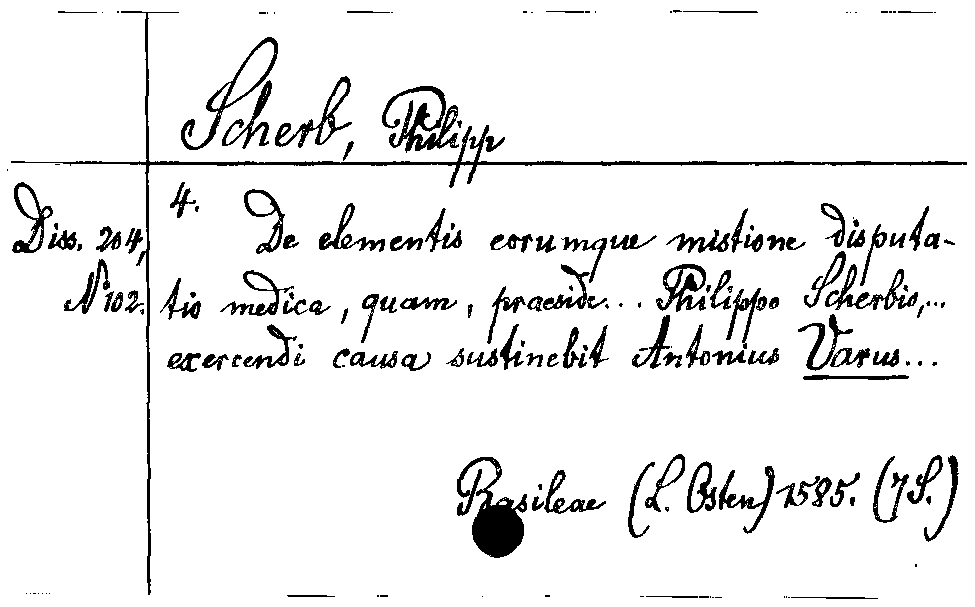 Scherb, Philipp
4.
Diss. 204, De elementis eorumque mistione disputa-
No 102. tio medica, quam, praeside... Philippo Scherbio,...
exercendi causa sustinebit Antonius Varus...
Basileae (L. Osten) 1585. (7 S.)